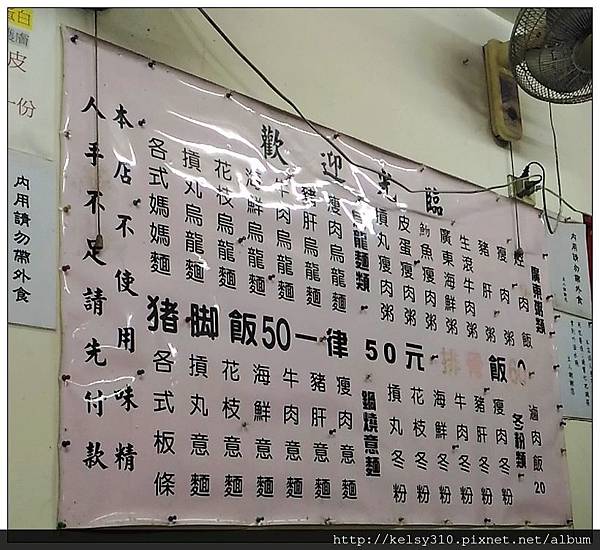 歡迎光臨
廣東粥類
焢肉飯
瘦肉粥
豬肝粥
生滾牛肉粥
廣東海鮮粥
魩魚瘦肉粥
皮蛋瘦肉粥
摃丸瘦肉粥
烏龍麵類
瘦肉烏龍麵
豬肝烏龍麵
牛肉烏龍麵
海鮮烏龍麵
花枝烏龍麵
摃丸烏龍麵
各式媽媽麵
豬脚飯50一律50元
排骨飯60
滷肉飯20
冬粉類
瘦肉冬粉
豬肝冬粉
牛肉冬粉
海鮮冬粉
花枝冬粉
摃丸冬粉
鍋燒意麵
瘦肉意麵
豬肝意麵
牛肉意麵
海鮮意麵
花枝意麵
摃丸意麵
各式板條
本店不使用味精
人手不足請先付款
內用請勿帶外食
內用請勿帶外食
蛋白
皮
一份
http://kelsy310.pixnet.net/album